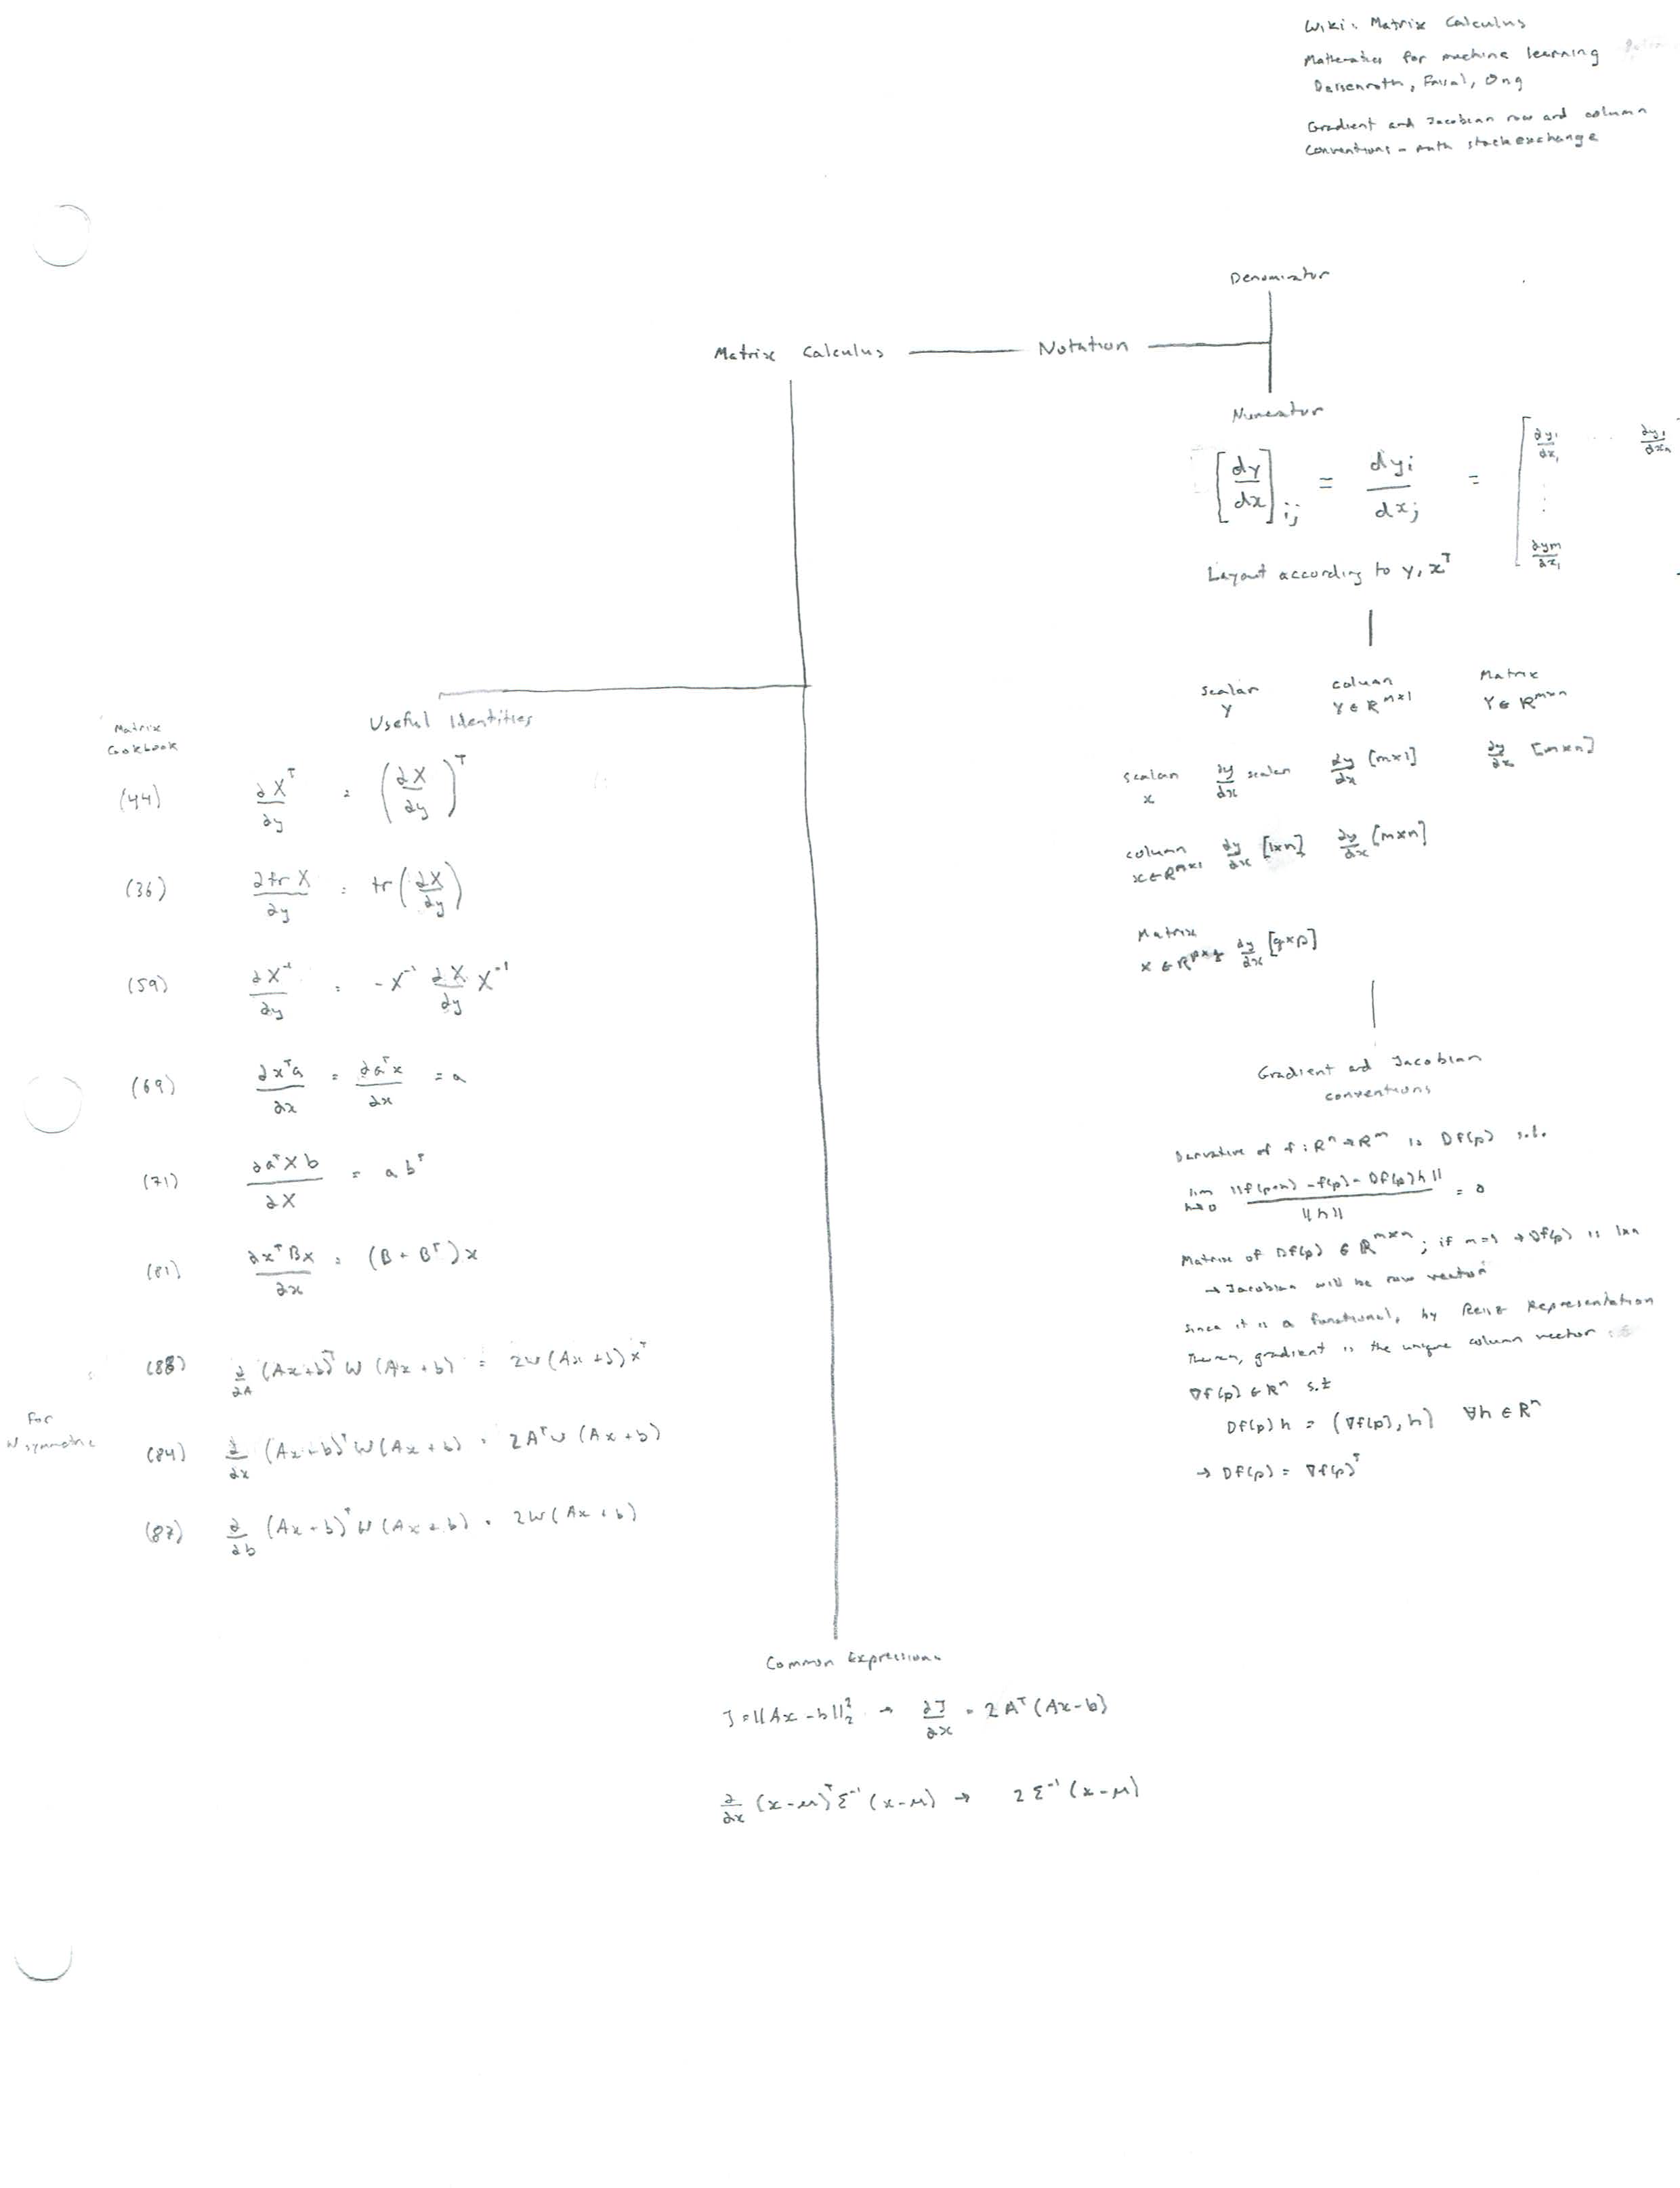 Wiki: Matrix Calculus
Mathematics for machine learning
Deisenroth, Faisal, Ong
Gradient and Jacobian row and column
conventions - math stack exchange
Denominator
Matrix Calculus — Notation
Numerator
[dy/dx]ij = dyi/dxj = [∂y1/∂x1 ... ∂y1/∂xn
⋮
∂ym/∂x1
Layout according to y, x^T
scalar column Matrix
y Y ∈ R^m×1 Y ∈ R^m×n
scalar ∂y/∂x scalar ∂y/∂x [m×1] ∂y/∂x [m×n]
x
column ∂y/∂x [1×n] ∂y/∂x [m×n]
x ∈ R^n×1
Matrix
x ∈ R^p×q ∂y/∂x [q×p]
Gradient and Jacobian
conventions
Derivative of f: R^n → R^m is Df(p) s.t.
lim h→0 ||f(p+h) - f(p) - Df(p)h|| / ||h|| = 0
Matrix of Df(p) ∈ R^m×n; if m=1 → Df(p) is 1×n
→ Jacobian will be row vector
since it is a functional, by Reisz Representation
Theorem, gradient is the unique column vector
∇f(p) ∈ R^n s.t
Df(p)h = (∇f(p), h) ∀h ∈ R^n
→ Df(p) = ∇f(p)^T
Useful Identities
Matrix
Cookbook
(44) ∂X^T/∂y = (∂X/∂y)^T
(36) ∂tr X/∂y = tr(∂X/∂y)
(59) ∂X^-1/∂y = -X^-1 ∂X/∂y X^-1
(69) ∂x^T a/∂x = ∂a^T x/∂x = a
(71) ∂a^T X b/∂X = a b^T
(81) ∂x^T B x/∂x = (B + B^T)x
(88) ∂/∂A (Ax+b)^T W (Ax+b) = 2W(Ax+b)x^T
For
W symmetric
(84) ∂/∂x (Ax+b)^T W(Ax+b) = 2A^T W (Ax+b)
(87) ∂/∂b (Ax+b)^T W(Ax+b) = 2W(Ax+b)
Common Expressions
J = ||Ax - b||_2^2 → ∂J/∂x = 2A^T(Ax-b)
∂/∂x (x-μ)^T Σ^-1 (x-μ) → 2Σ^-1(x-μ)